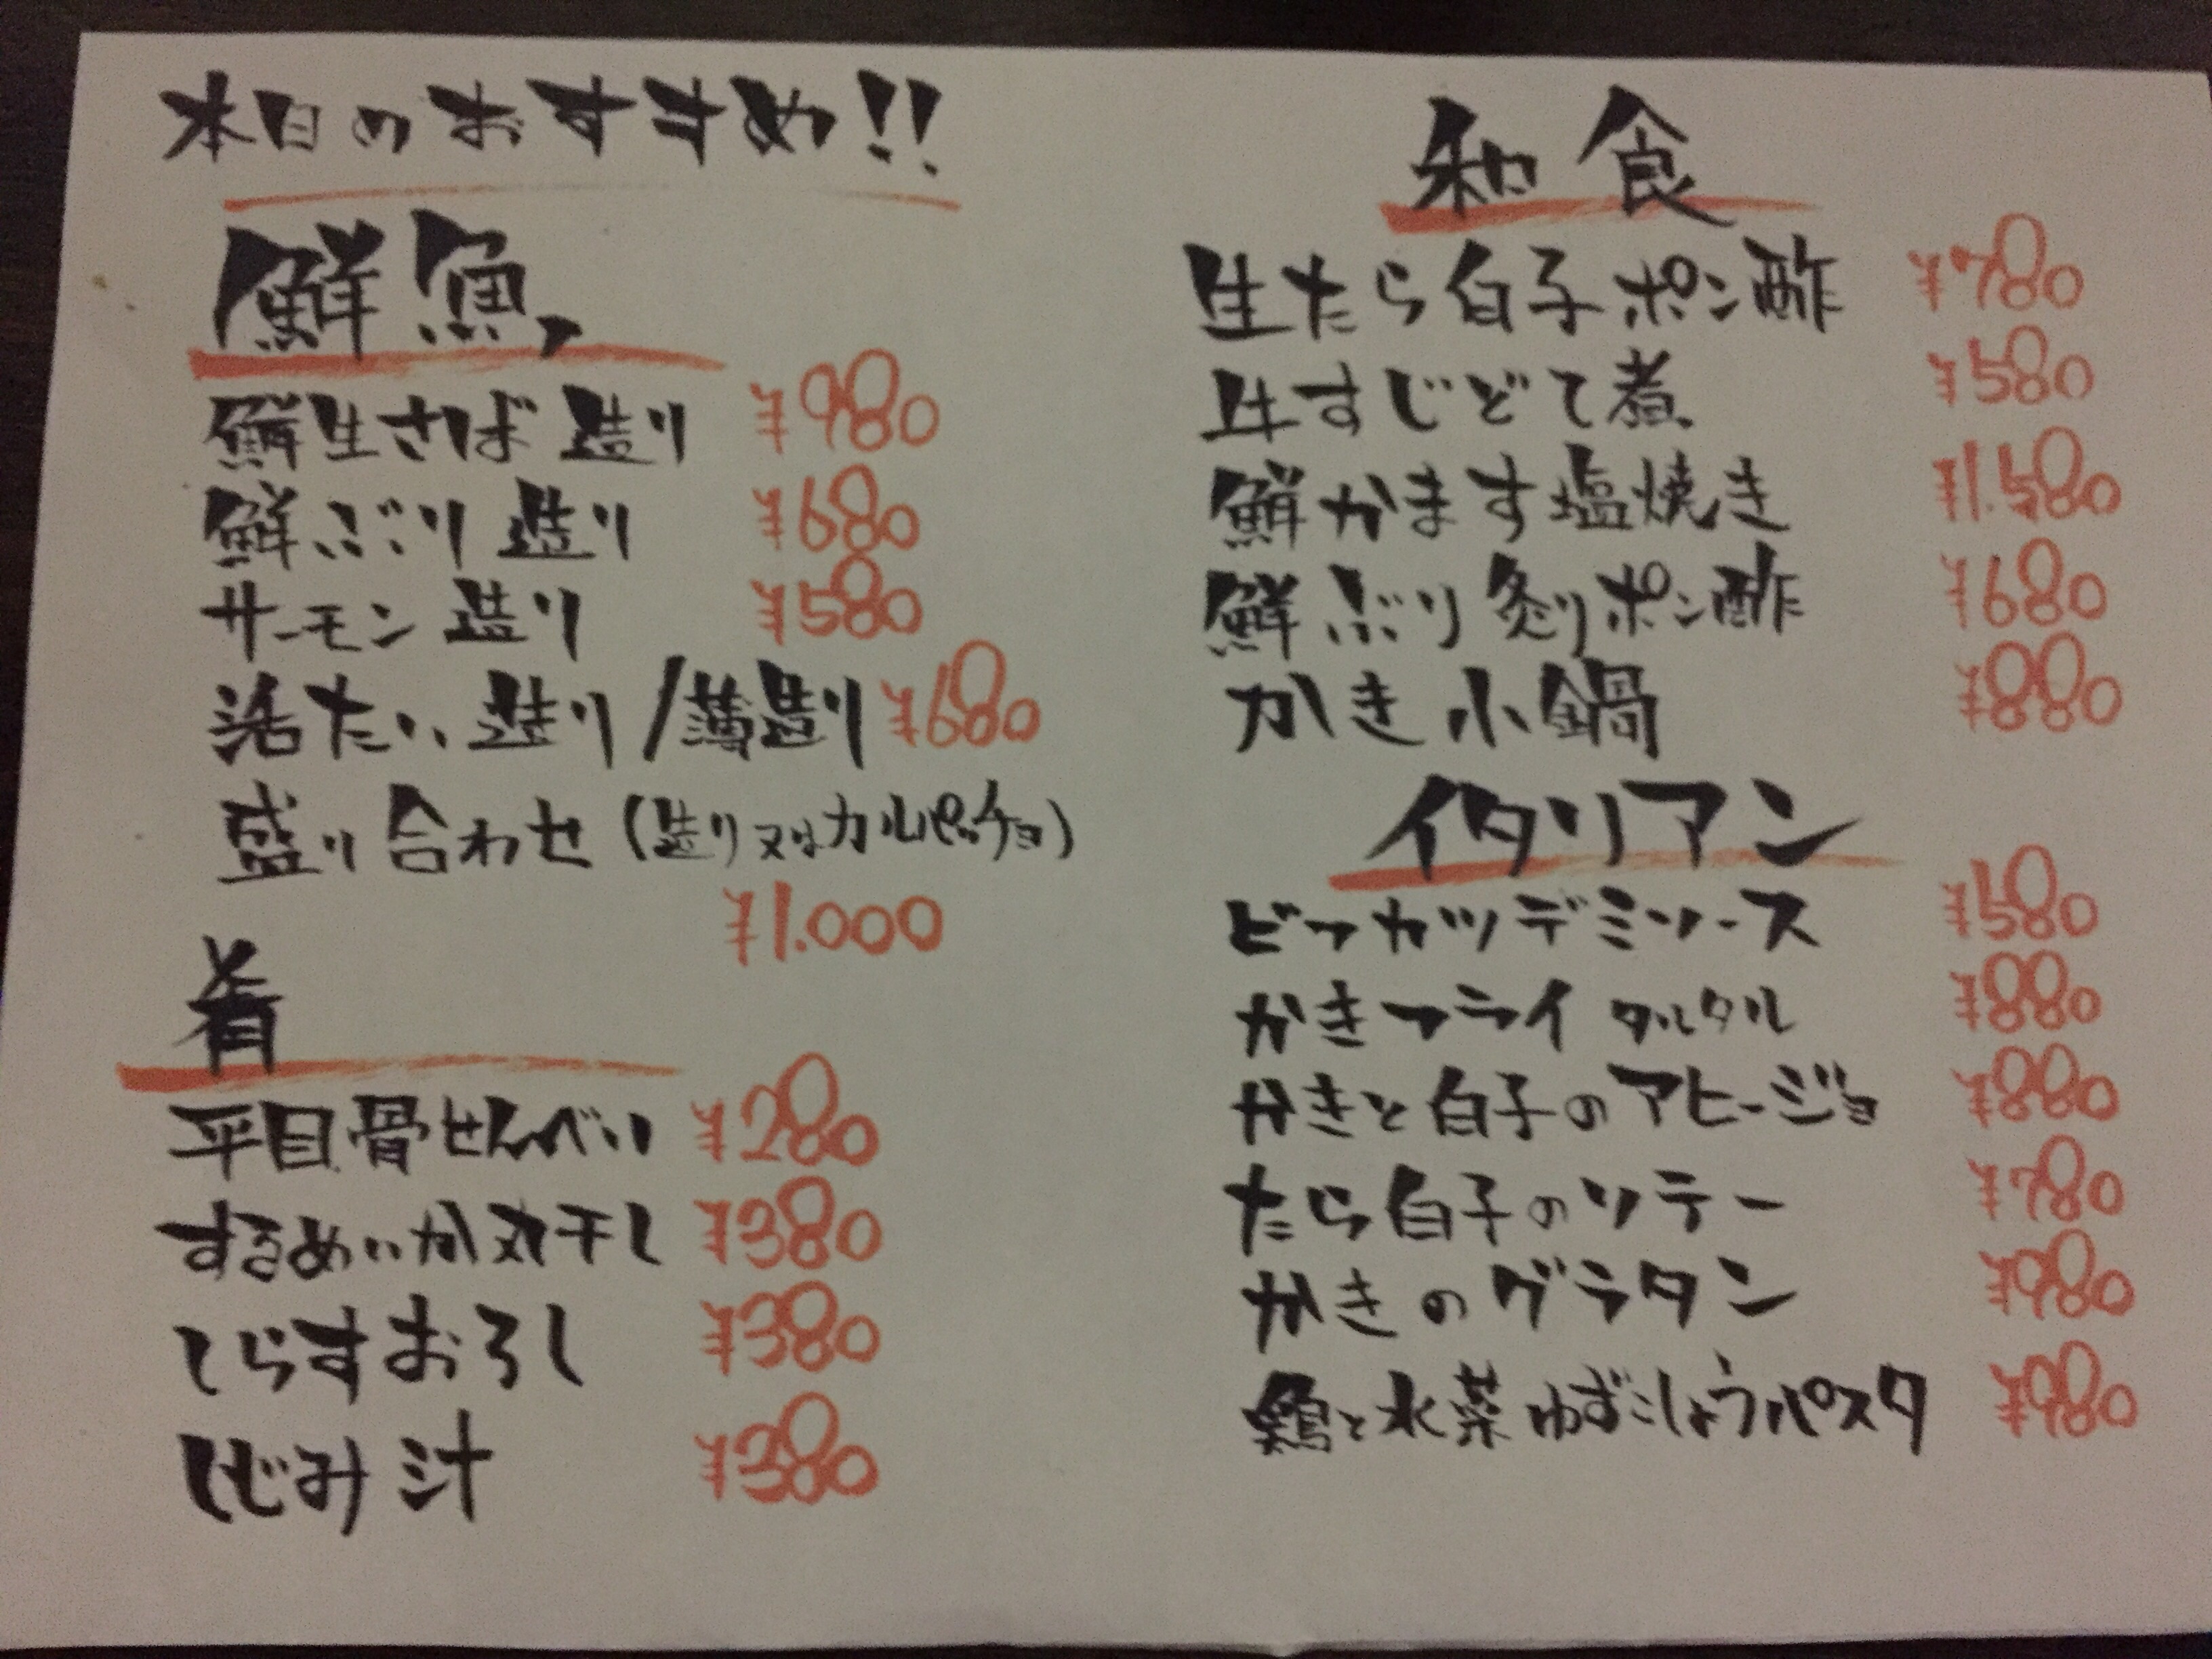 本日のおすすめ!!
鮮魚
鮮生さば造り ¥980
鮮ぶり造り ¥680
サーモン造り ¥580
活たい造り/薄造り ¥680
盛り合わせ(造り又はカルパッチョ)
¥1.000
肴
平目骨せんべい ¥280
するめいか丸干し ¥380
しらすおろし ¥380
しじみ汁 ¥380
和食
生たら白子ポン酢 ¥780
牛すじどて煮 ¥580
鮮かます塩焼き ¥1.580
鮮ぶり炙りポン酢 ¥680
かき小鍋 ¥880
イタリアン
ビフカツデミソース ¥580
かきフライタルタル ¥880
かきと白子のアヒージョ ¥880
たら白子のソテー ¥780
かきのグラタン ¥980
鶏と水菜ゆずこしょうパスタ ¥980